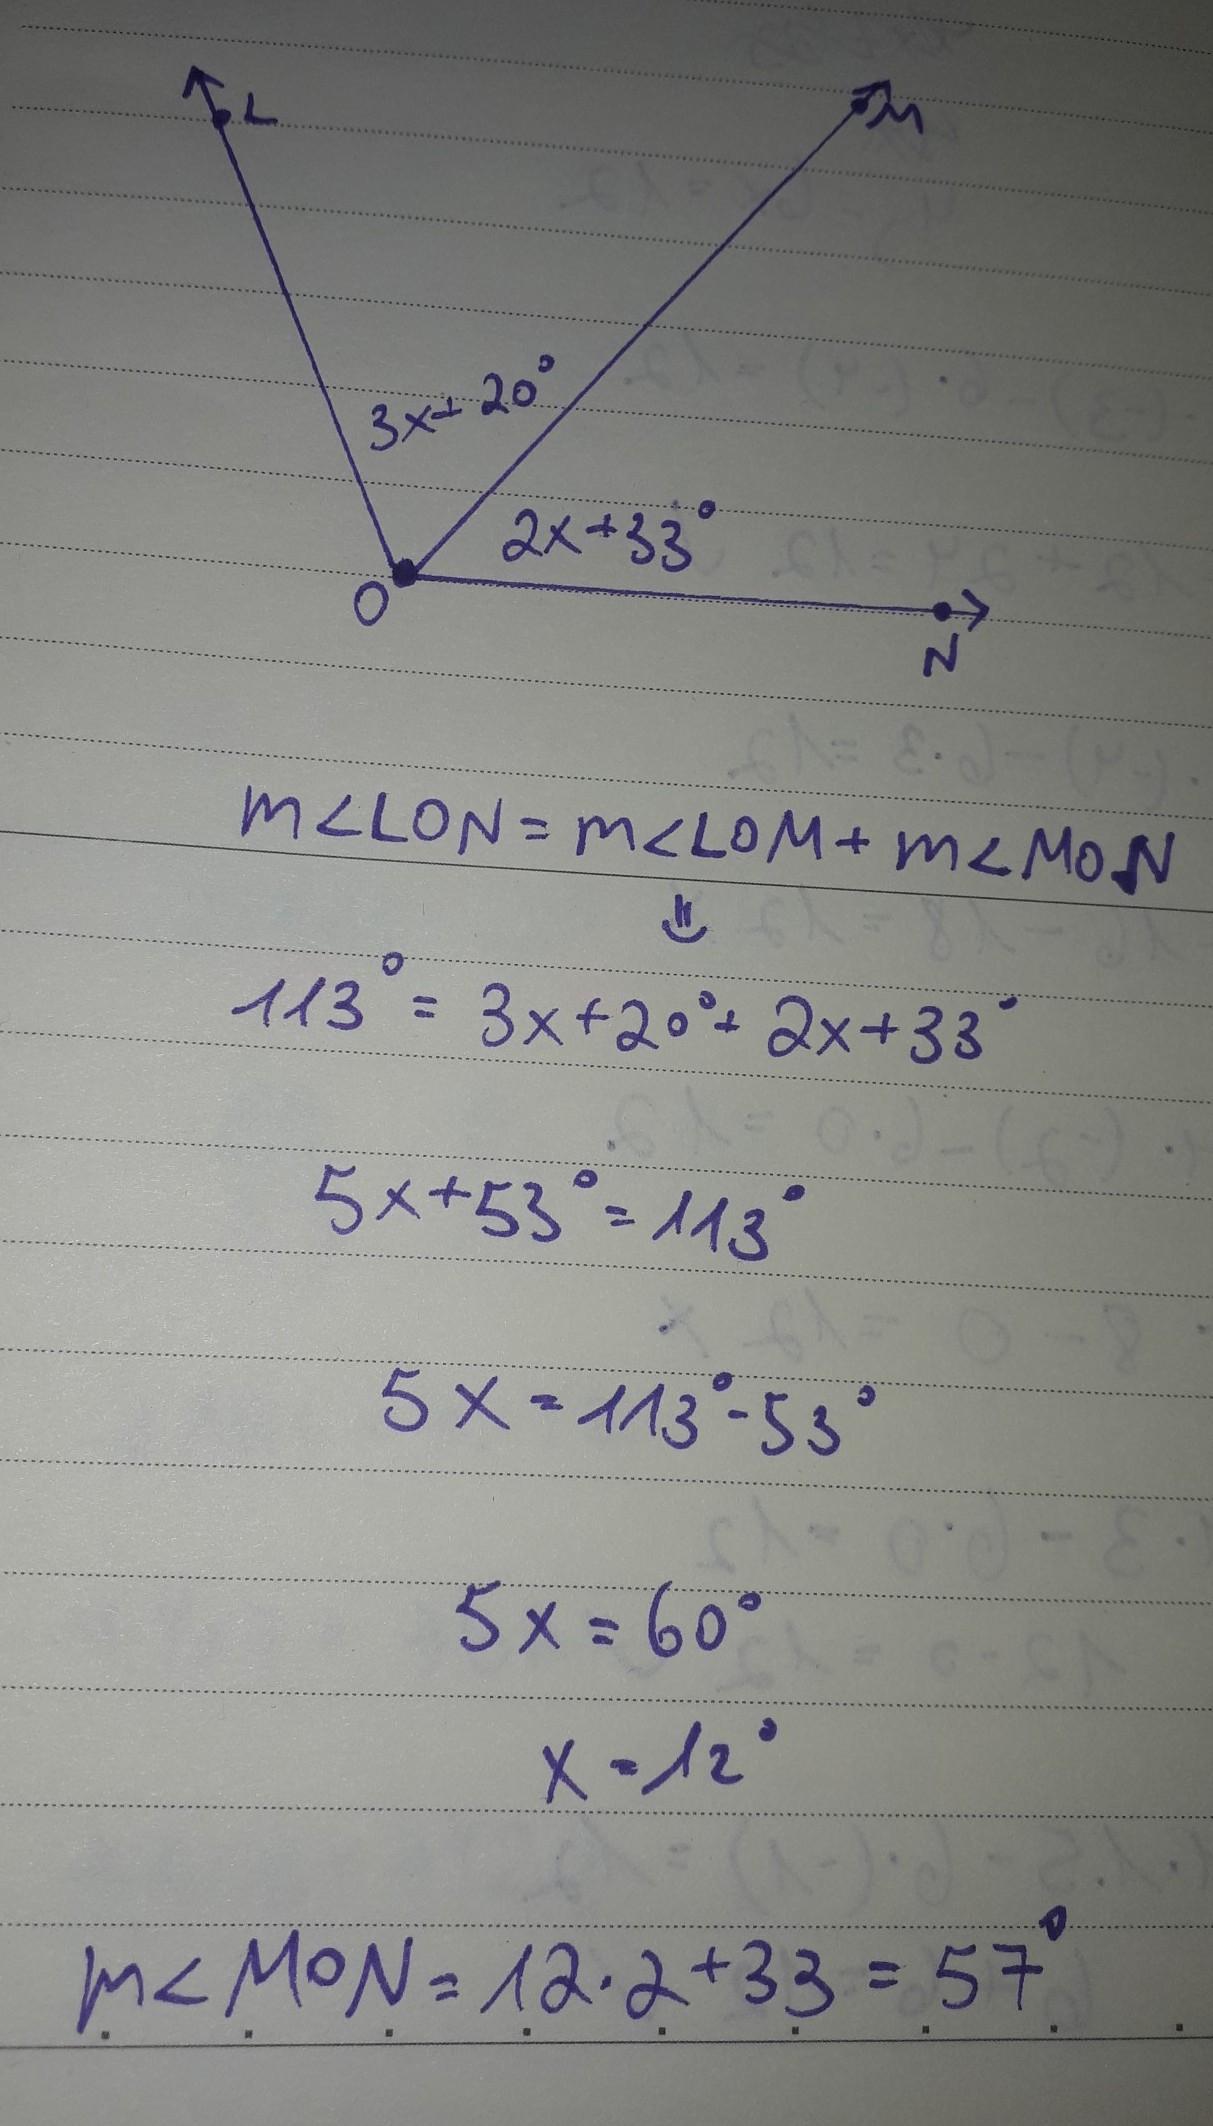 L
M
3x+20°
2x+33°
O
N
m<LON=m<LOM+m<MON
113°=3x+20°+2x+33°
5x+53°=113°
5x=113°-53°
5x=60°
x=12°
m<MON=12·2+33=57°